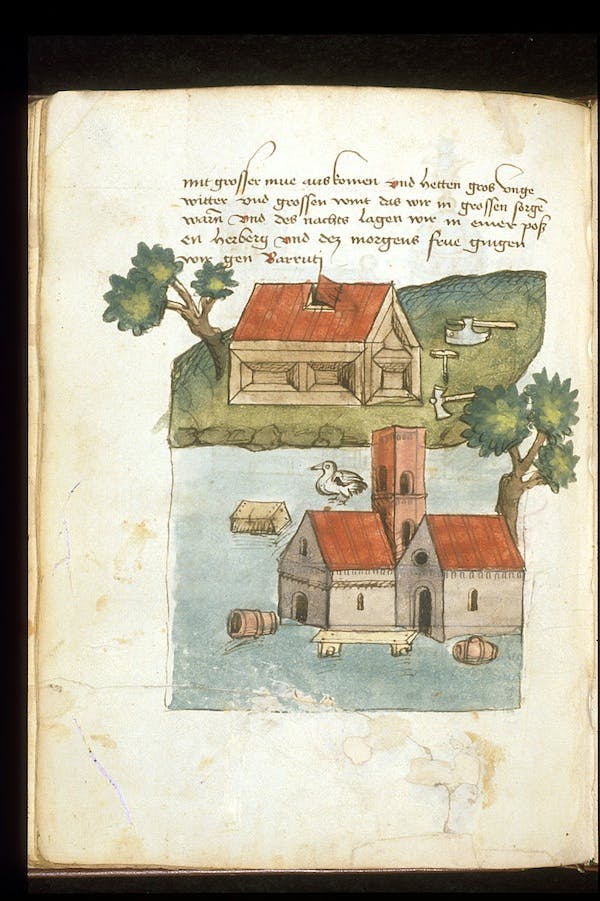 mit grosser mue aus komen vnd hetten gros vnge
witter vnd grossen wint das wir in grossen sorgen
warn vnd des nachts lagen wir in einer poß
en herberg vnd dez morgens frue gingen
wir gen Barruti